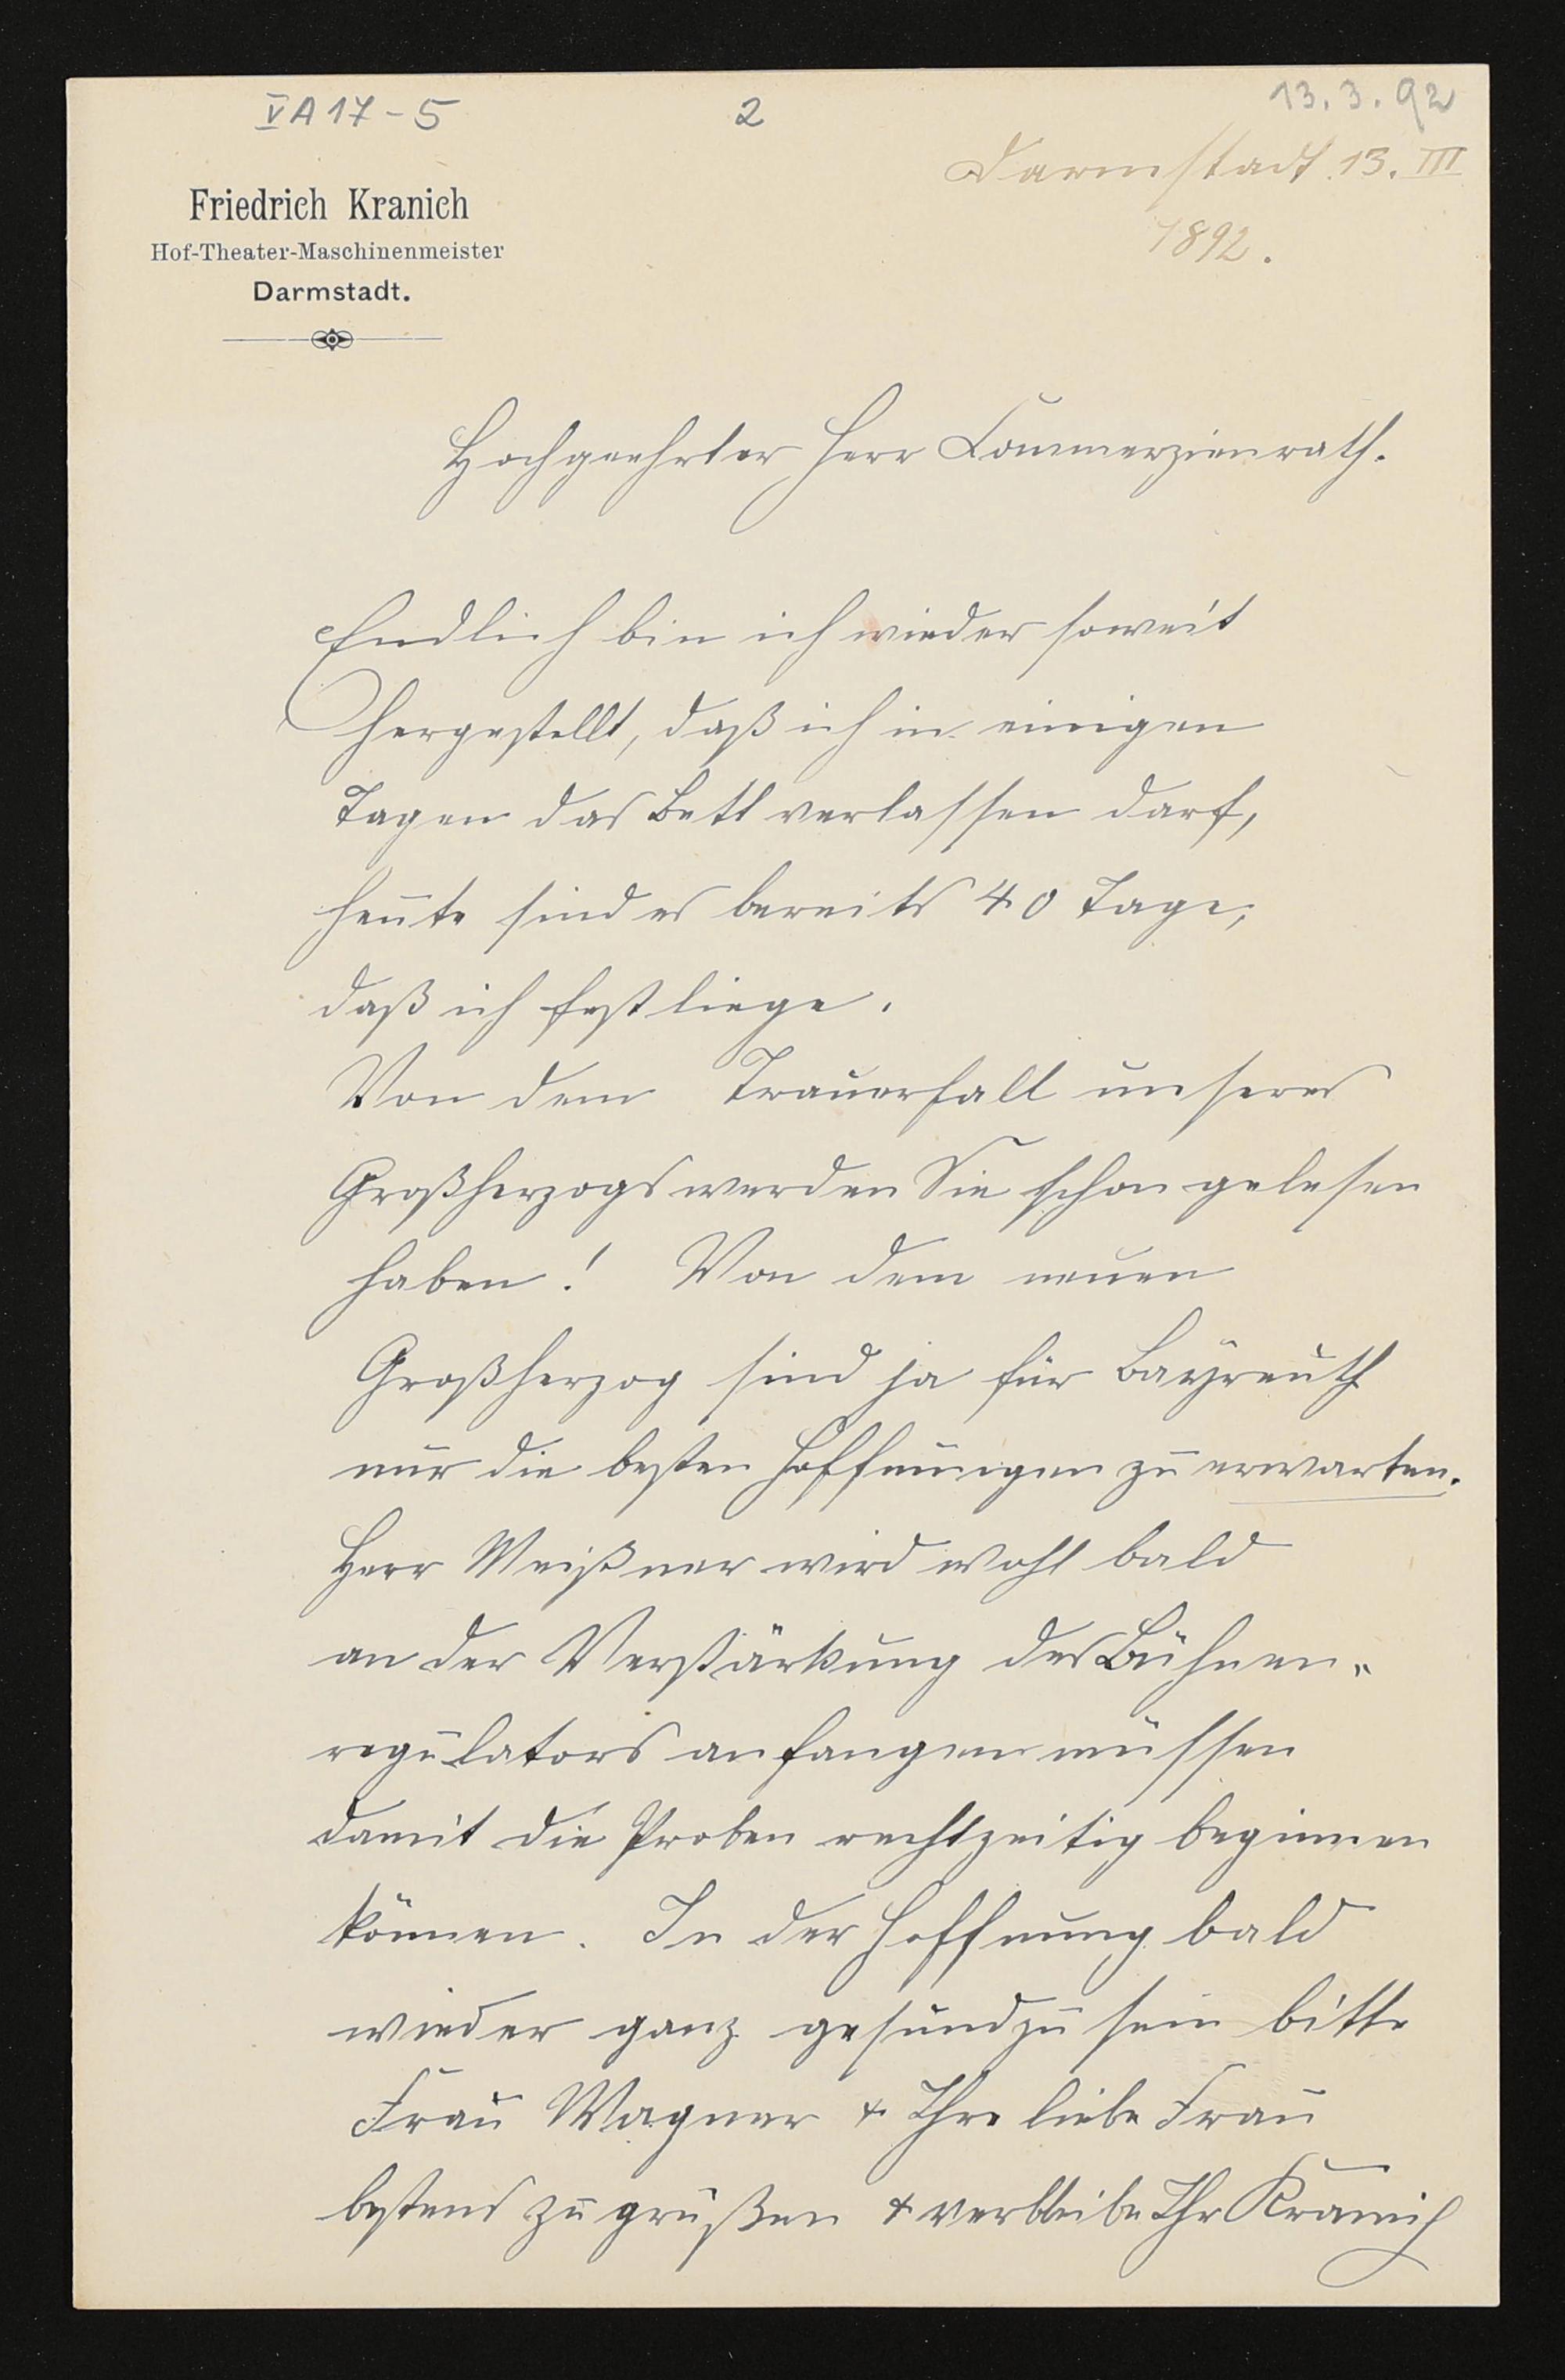 VA17-5
2
13.3.92
Darmstadt 13. III
1892.
Friedrich Kranich
Hof-Theater-Maschinenmeister
Darmstadt.
Hochgeehrter Herr Commerzienrath.
Endlich bin ich wieder soweit
hergestellt, daß ich in einigen
Tagen das Bett verlassen darf,
heute sind es bereits 40 Tage,
daß ich fest liege.
Von dem Trauerfall unseres
Großherzogs werden Sie schon gelesen
haben! Von dem neuen
Großherzog sind ja für Bayreuth
nur die besten Hoffnungen zu erwarten.
Herr Meißner wird wohl bald
an der Verstärkung des Bühnen-
regulators anfangen müssen
damit die Proben rechtzeitig beginnen
können. In der Hoffnung bald
wieder ganz gesund zu sein bitte
Frau Wagner & Ihre liebe Frau
bestens zu grüßen & verbleibe Ihr Kranich